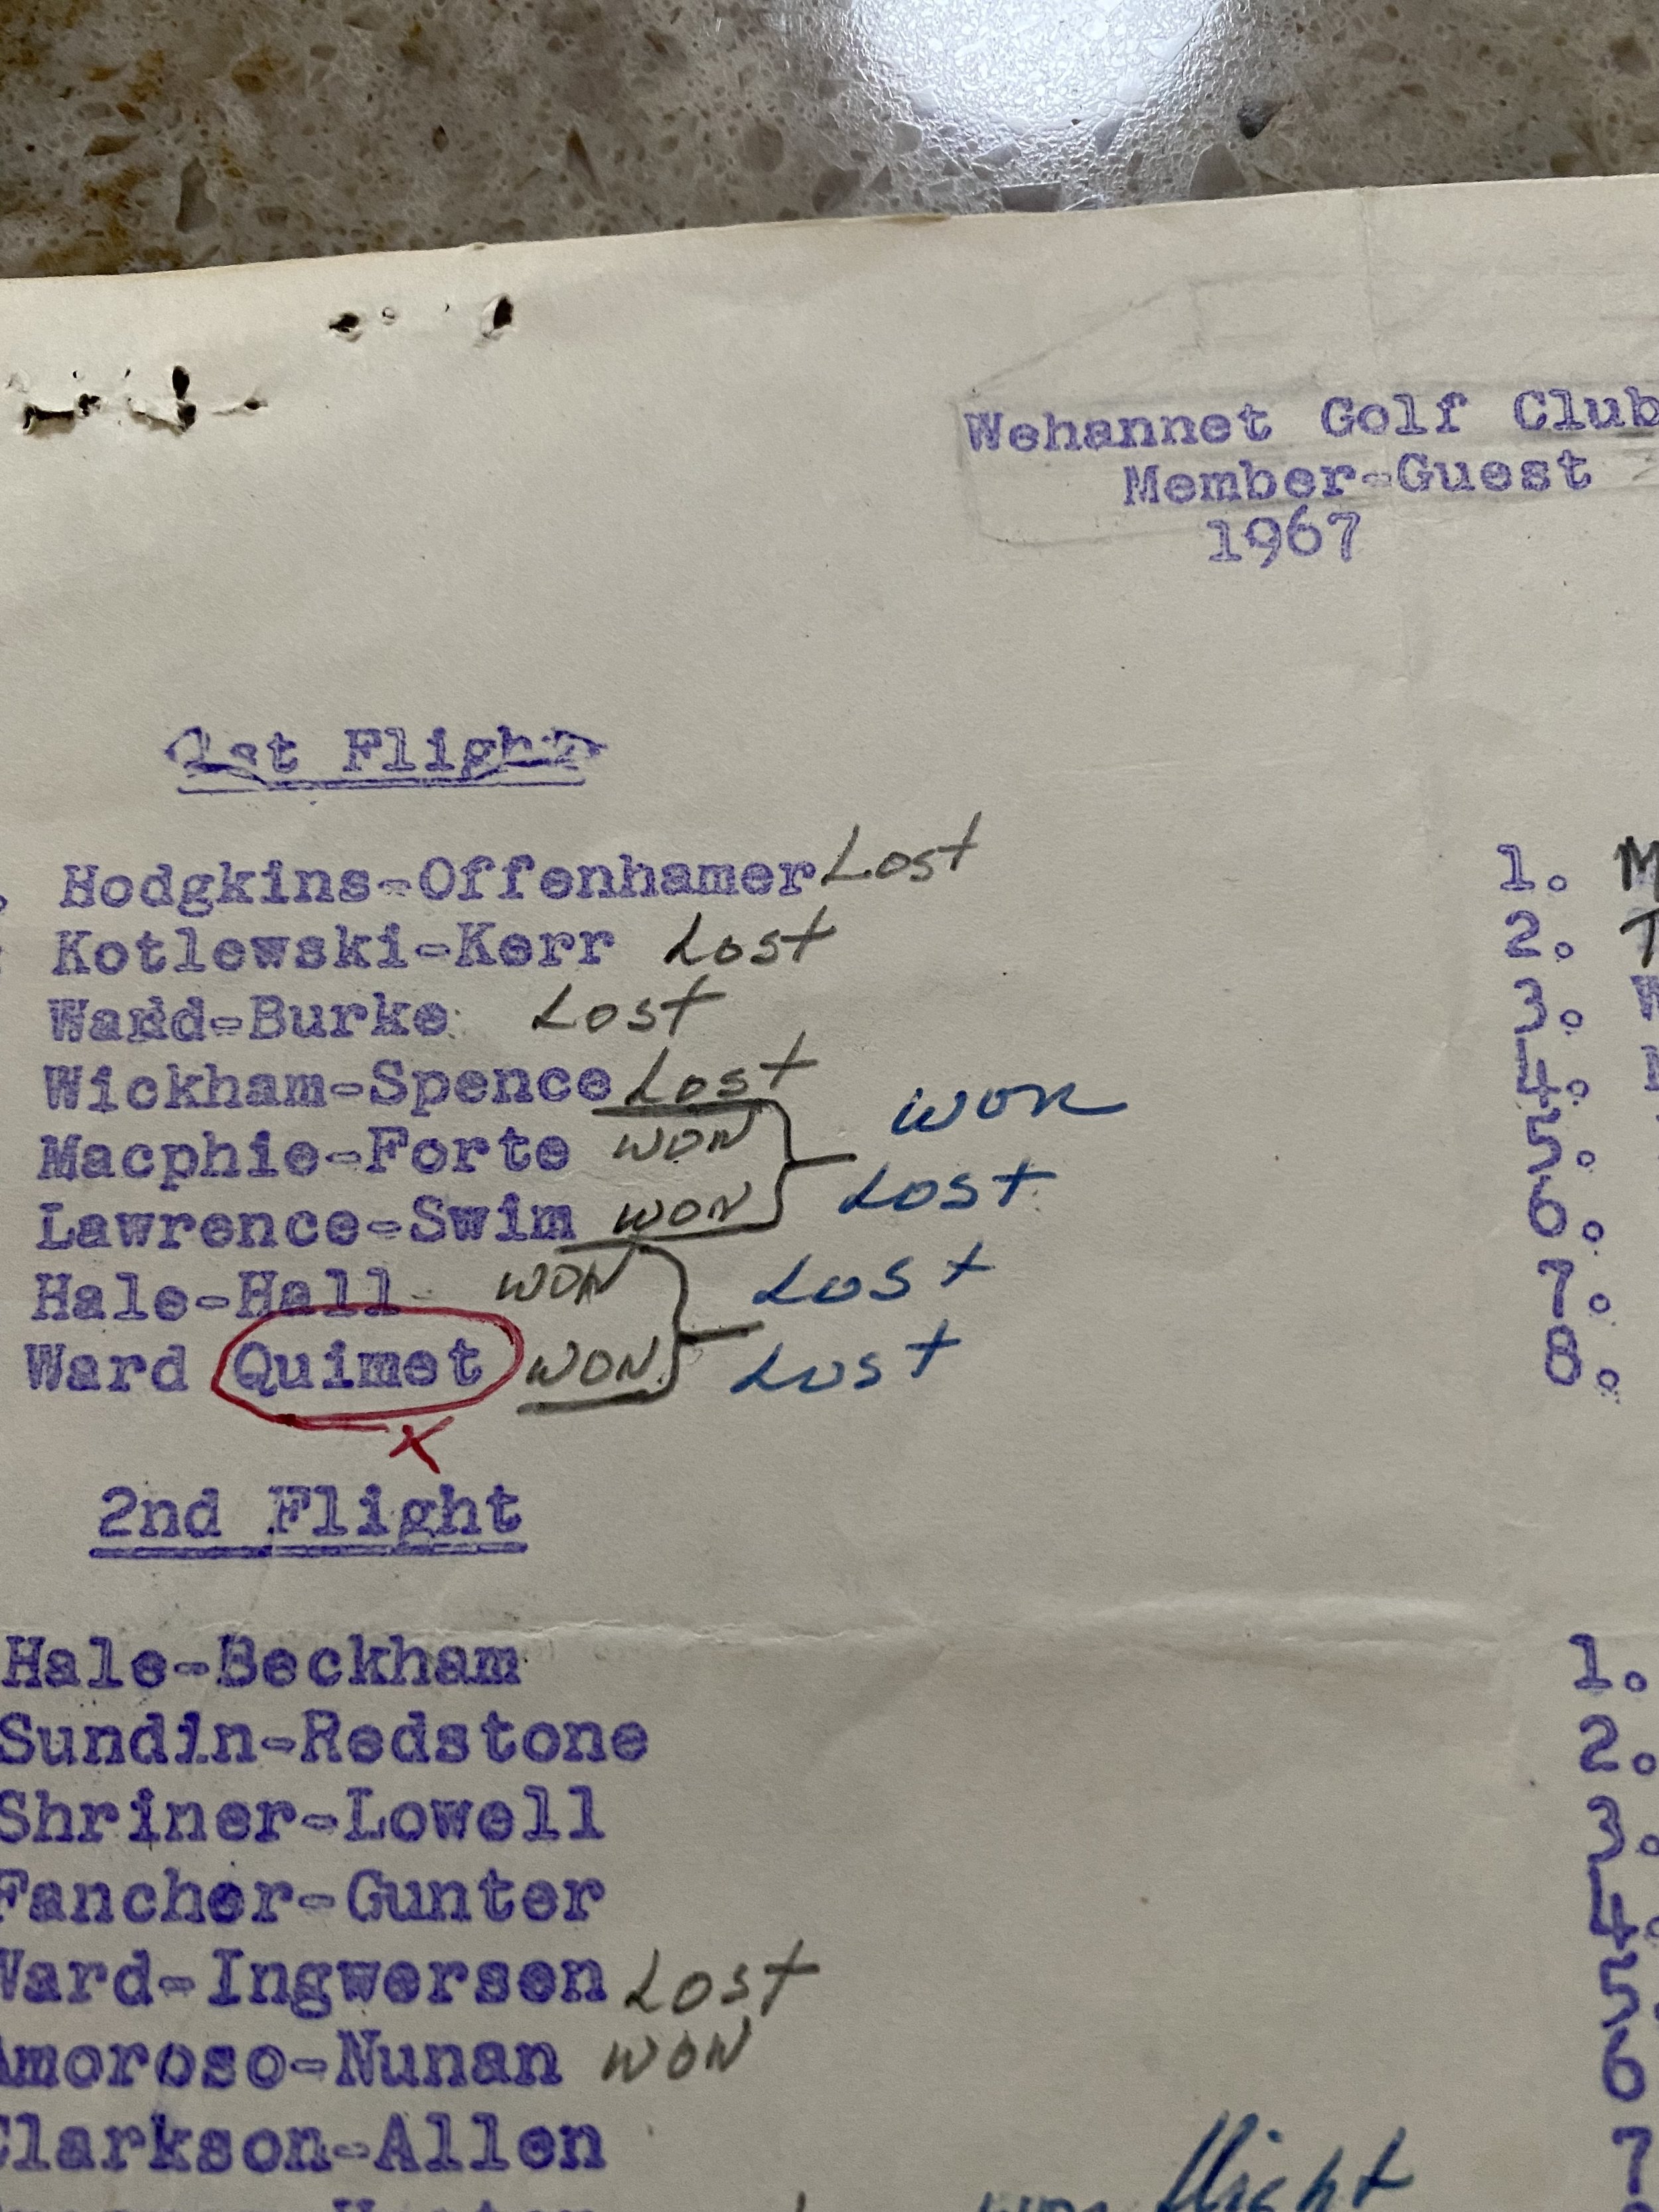 Wehannet Golf Club
Member-Guest
1967
1st Flight
Hodgkins-Offenhamer Lost 1. M
Kotlewski-Kerr Lost 2. T
Wardd-Burke Lost 3. W
Wickham-Spence Lost 4.
Macphie-Forte WON WON 5.
Lawrence-Swim WON Lost 6.
Hale-Hall WON Lost 7.
Ward Quimet WON Lost 8.
X
2nd Flight
Hale-Beckham 1.
Sundin-Redstone 2.
Shriner-Lowell 3.
Fancher-Gunter 4.
Ward-Ingwersen Lost 5.
Amoroso-Nunan WON 6
Clarkson-Allen 7
won flight